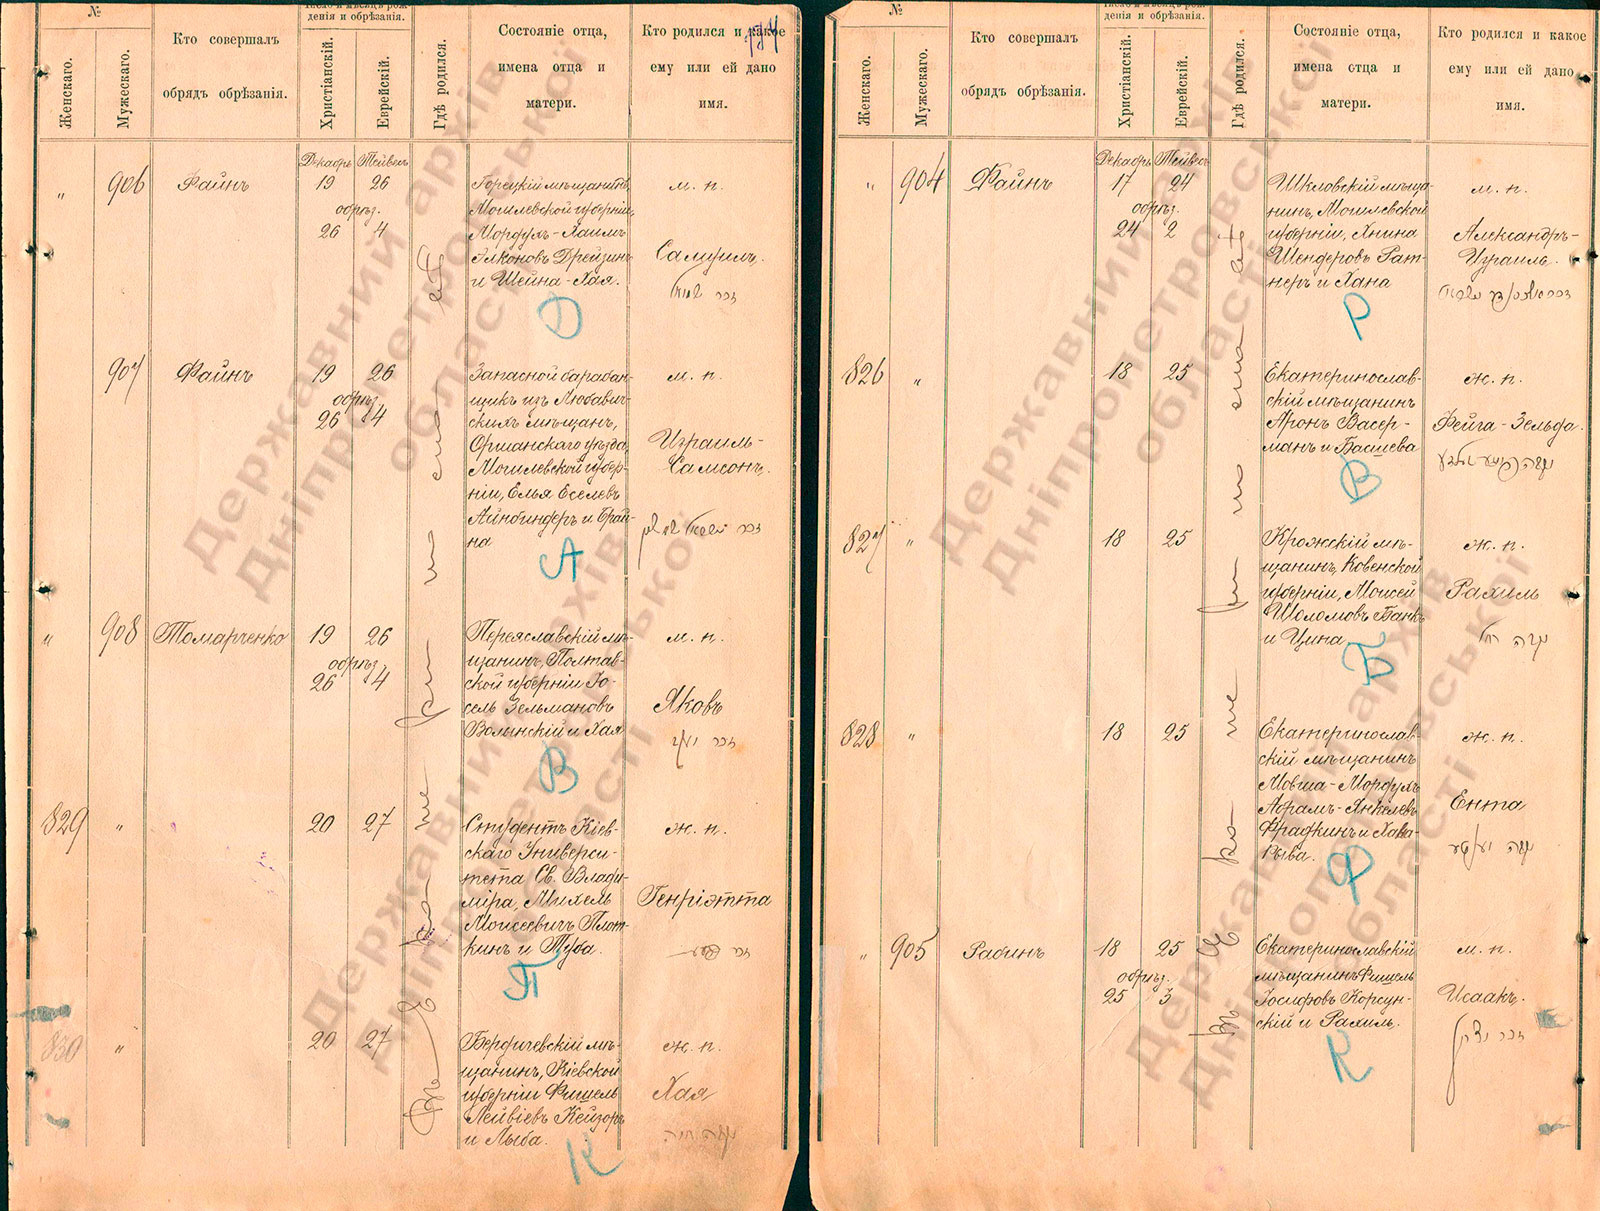 №
Число и мѣсяцъ рож-
денія и обрѣзанія.
Женскаго.
Мужескаго.
Кто совершалъ
обрядъ обрѣзанія.
Христіанскій.
Еврейскій.
Гдѣ родился.
Состояніе отца,
имена отца и
матери.
Кто родился и какое
ему или ей дано
имя.
Декабрь Тейвесъ
„ 906 Файнъ 19 26
обрѣз.
26 4
Горецкій мѣщанинъ,
Могилевской губерніи,
Мордухъ-Хаимъ
Элконовъ Дрейзинъ
и Шейна-Хая.
м. п.
Самуилъ.
זכר שמואל
Д
907 Файнъ 19 26
обрѣз.
26 4
Запасной барабан-
щикъ изъ Любавич-
скихъ мѣщанъ,
Оршанскаго уѣзда,
Могилевской губер-
ніи, Елья Еселевъ
Айнбиндеръ и Брай-
на
м. п.
Израиль-
Самсонъ.
А
„ 908 Томарченко 19 26
обрѣз.
26 4
Переяславскій мѣ-
щанинъ, Полтав-
ской губерніи Іо-
сель Зельмановъ
Волынскій и Хая
м. п.
Яковъ
זכר יעקב
В
829 „ 20 27
Студентъ Кіев-
скаго Универси-
тета Св. Влади-
міра, Михель
Моисеевичъ Плот-
кинъ и Туба.
ж. п.
Генріэтта
П
830 „ 20 27
Бердичевскій мѣ-
щанинъ, Кіевской
губерніи Фишель
Лейвіевъ Кейзоръ
и Лыба.
ж. п.
Хая
נקבה חיה
К
№
Число и мѣсяцъ рож-
денія и обрѣзанія.
Женскаго.
Мужескаго.
Кто совершалъ
обрядъ обрѣзанія.
Христіанскій.
Еврейскій.
Гдѣ родился.
Состояніе отца,
имена отца и
матери.
Кто родился и какое
ему или ей дано
имя.
Декабрь Тейвесъ
„ 904 Файнъ 17 24
обрѣз.
24 2
Шкловскій мѣща-
нинъ, Могилевской
губерніи, Янина
Шендеровъ Рат-
неръ и Хана
м. п.
Александръ-
Израиль.
Р
826 „ 18 25
Екатеринослав-
скій мѣщанинъ
Аронъ Васер-
манъ и Башева
ж. п.
Фейга-Зельда.
В
827 „ 18 25
Крожскій мѣ-
щанинъ, Ковенской
губерніи, Моисей
Шоломовъ Банкъ
и Цина
ж. п.
Рахиль
נקבה רחל
Б
828 „ 18 25
Екатеринослав-
скій мѣщанинъ
Мовша-Мордухъ
Абрамъ-Янкелевъ
Фрадкинъ и Хава-
Рыва.
ж. п.
Ента
נקבה יענטע
Ф
„ 905 Рабинъ 18 25
обрѣз.
25 3
Екатеринославскій
мѣщанинъ Фишель
Іосифовъ Корсун-
скій и Рахиль.
м. п.
Исаакъ.
זכר יצחק
К
Державний архів
Дніпропетровської
області